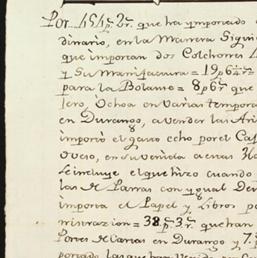 Por 454 p.s 2 r.s que ha ymporado
dinario, en la Manera Sigui
que importan dos Colchones
y Su Manifacura = 19 p.s 6 4 r.s =
para la Bolanta = 8 p.s 6 r.s que
Jero, Ochoa en varias tempora
en Durango, a vender las Ari
importó el gasto echo por el Cap
Oveso, en su venida a estas Ha
Se incluye el que hizo cuando
las de Parras con ygual Des
importa el Papel y Libros po
nistrazion = 38 p.s 3 r.s que han
Portes de Cartas en Durango y 7 p.